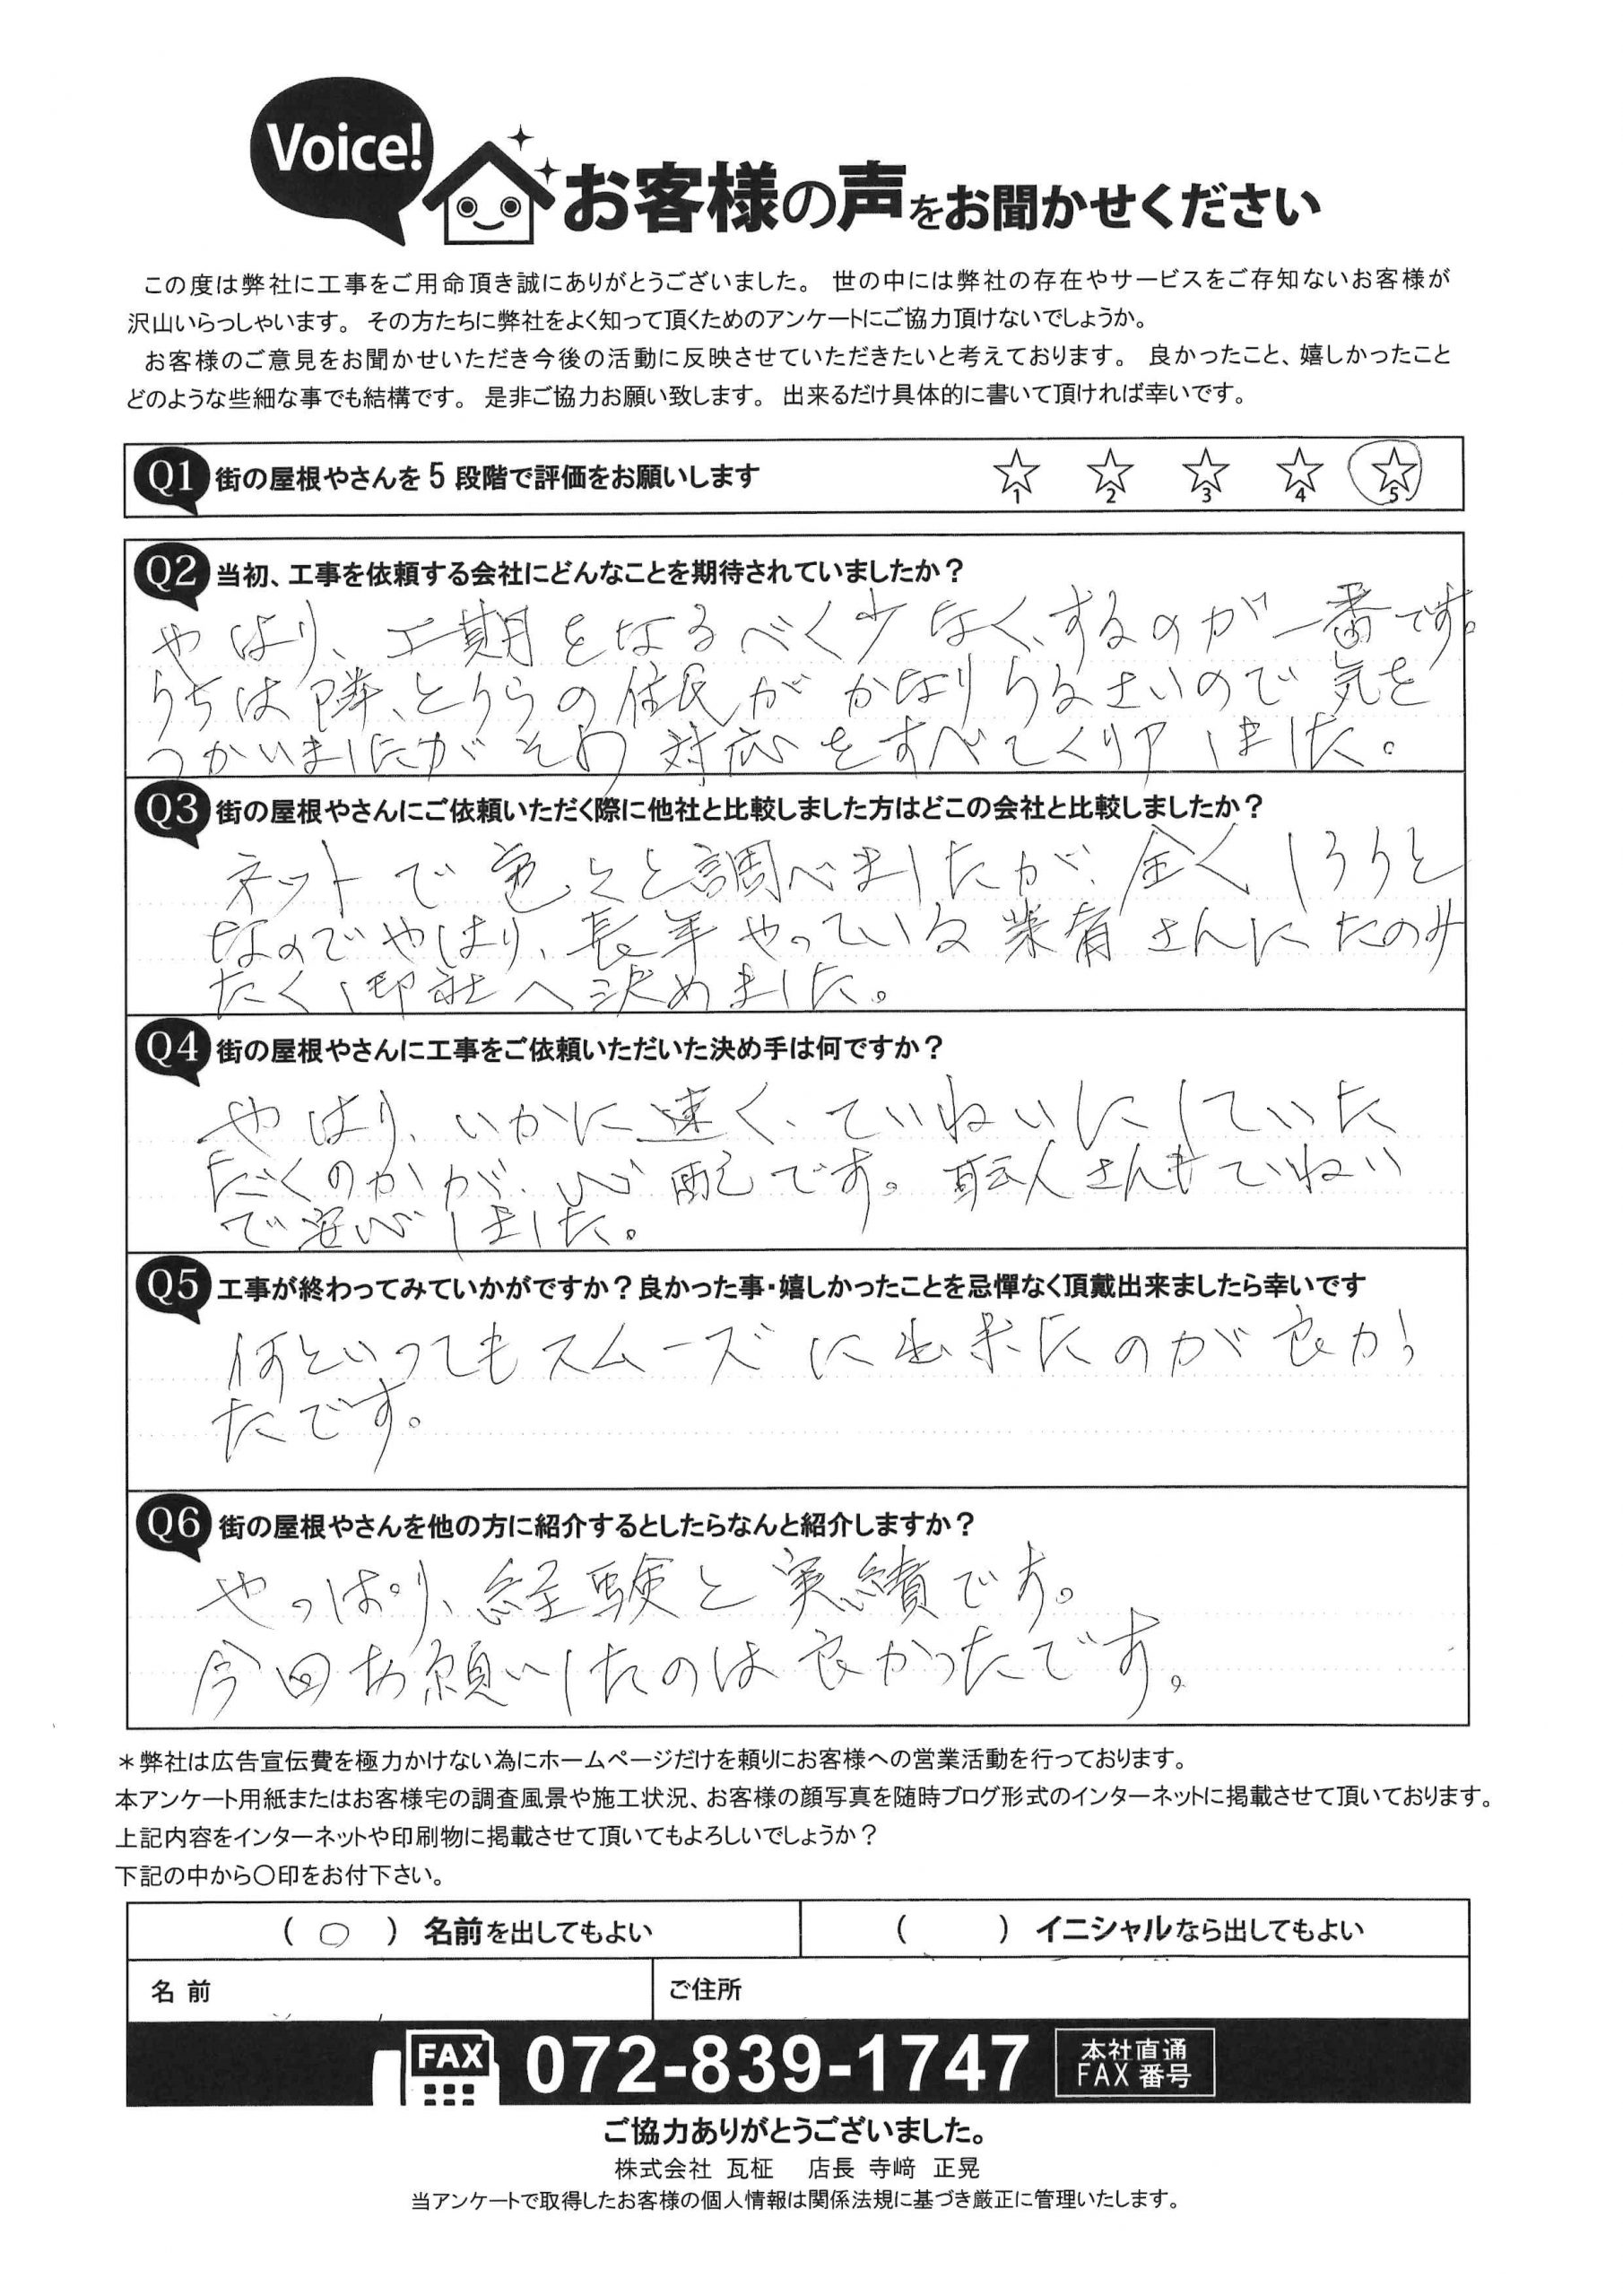 Voice!
お客様の声をお聞かせください
この度は弊社に工事をご用命頂き誠にありがとうございました。 世の中には弊社の存在やサービスをご存知ないお客様が
沢山いらっしゃいます。 その方たちに弊社をよく知って頂くためのアンケートにご協力頂けないでしょうか。
お客様のご意見をお聞かせいただき今後の活動に反映させていただきたいと考えております。 良かったこと、嬉しかったこと
どのような些細な事でも結構です。 是非ご協力お願い致します。 出来るだけ具体的に書いて頂ければ幸いです。
Q1 街の屋根やさんを5段階で評価をお願いします 1 2 3 4 5
Q2 当初、工事を依頼する会社にどんなことを期待されていましたか？
やはり、工期をなるべく少なく、するのが一番です。
うちは隣、とうらの住民がかなりうるさいので気を
つかいましたがその対応をすべてクリアしました。
Q3 街の屋根やさんにご依頼いただく際に他社と比較しました方はどこの会社と比較しましたか？
ネットで色々と調べましたが、全くしろうと
なのでやはり、長年やっている業者さんにたのみ
たく、御社へ決めました。
Q4 街の屋根やさんに工事をご依頼いただいた決め手は何ですか？
やはり、いかに速く、ていねいにしていた
だくのかが、心配です。職人さんもていねい
で安心しました。
Q5 工事が終わってみていかがですか？良かった事・嬉しかったことを忌憚なく頂戴出来ましたら幸いです
何といってもスムーズに出来たのが良かっ
たです。
Q6 街の屋根やさんを他の方に紹介するとしたらなんと紹介しますか？
やっぱり、経験と実績です。
今回お願いしたのは良かったです。
＊弊社は広告宣伝費を極力かけない為にホームページだけを頼りにお客様への営業活動を行っております。
本アンケート用紙またはお客様宅の調査風景や施工状況、お客様の顔写真を随時ブログ形式のインターネットに掲載させて頂いております。
上記内容をインターネットや印刷物に掲載させて頂いてもよろしいでしょうか？
下記の中から〇印をお付下さい。
（ ○ ）名前を出してもよい （ ）イニシャルなら出してもよい
名前 ご住所
FAX 072-839-1747 本社直通
FAX 番号
ご協力ありがとうございました。
株式会社 瓦柾 店長 寺﨑 正晃
当アンケートで取得したお客様の個人情報は関係法規に基づき厳正に管理いたします。